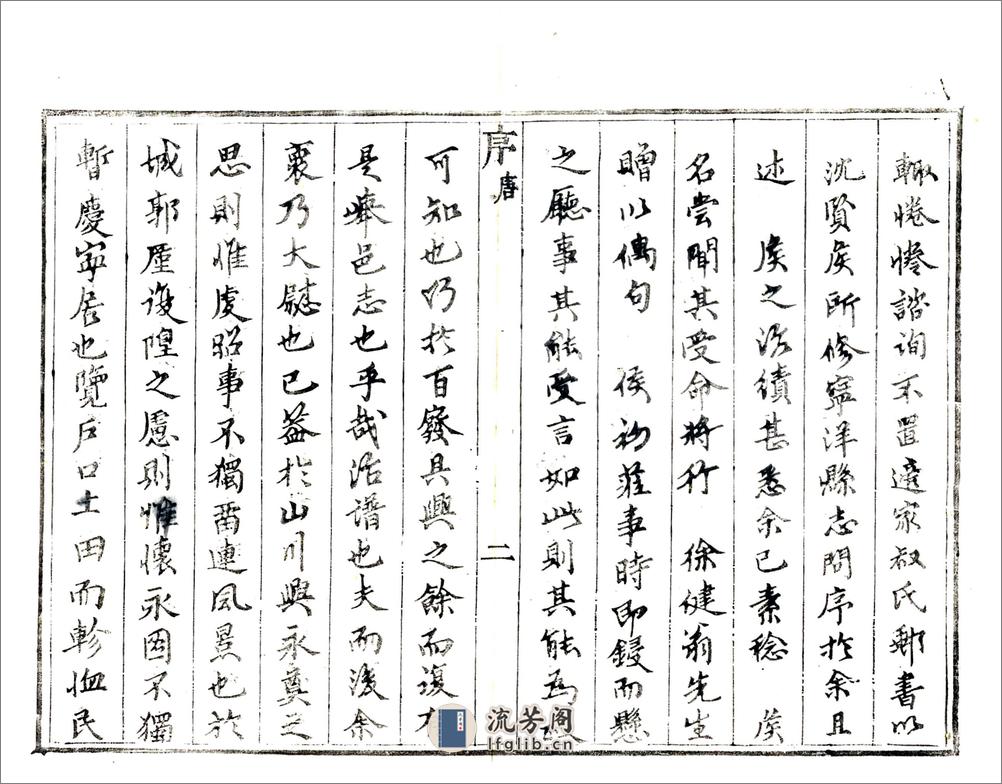 輒惓惓諮詢不置適家叔氏郵書以
沈賢侯所修寧洋縣志問序於余且
述 侯之治績甚悉余已素稔 侯
名嘗聞其受命將行 徐健翁先生
贈以偶句 侯初蒞事時即鋟而懸
之廳事其能受言如此則其能為
序 唐
二
可知也乃於百廢具興之餘而復有
是舉邑志也乎哉治譜也夫而後余
衷乃大慰也已益於山川興永奠之
思則惟虔昭事不獨留連風景也於
城郭厪復隍之慮則惟懷永固不獨
暫慶寧居也覽戶口土田而軫恤民
流芳阁
lfglib.cn